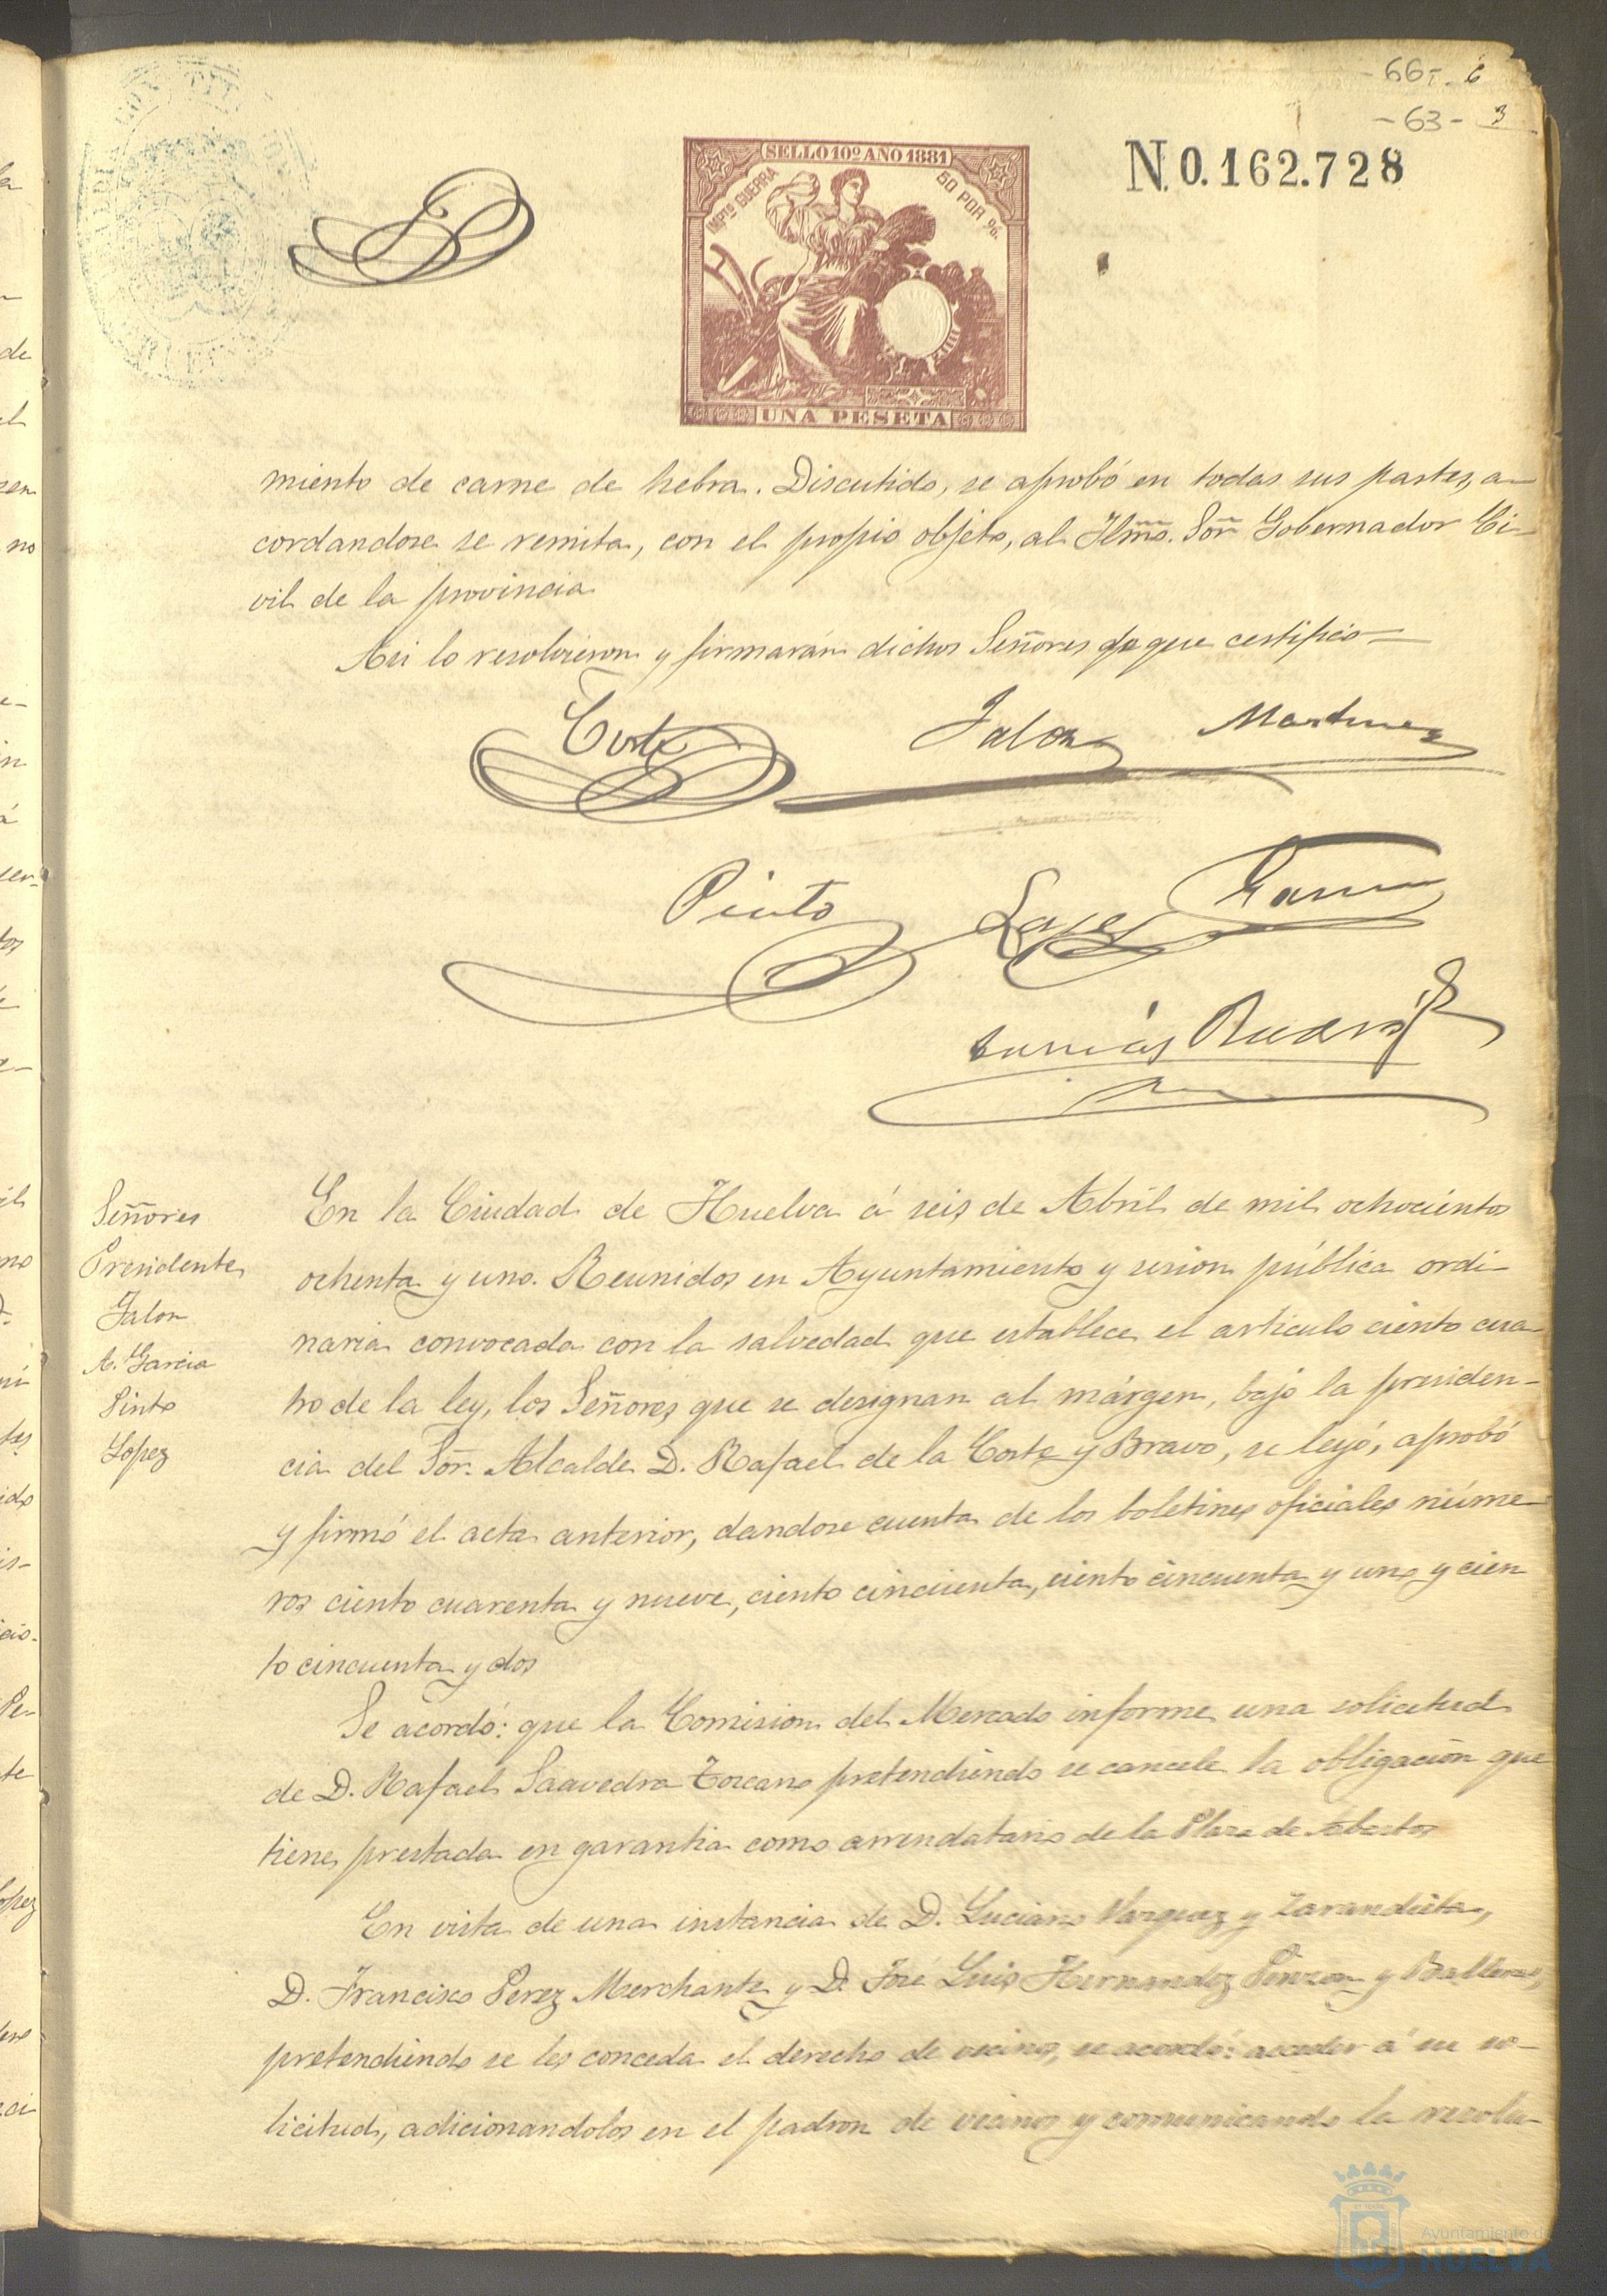 -66- 6
-63- 3
SELLO 10º AÑO 1881
IMPTO GUERRA
50 POR %.
UNA PESETA
N.0.162.728
miento de carne de hebra. Discutido, se aprobó en todas sus partes, a-
cordandose se remita, con el propio objeto, al Ilmo. Sor Gobernador Ci-
vil de la provincia
Asi lo resolvieron y firmarán dichos Señores de que certifico—
Corte
Jalon
Martinez
Pinto
Lopez
Garcia
Señores
Presidente
Jalon
A. Garcia
Pinto
Lopez
En la Ciudad de Huelva á seis de Abril de mil ochocientos
ochenta y uno. Reunidos en Ayuntamiento y sesion pública ordi-
naria convocada con la salvedad que establece el articulo ciento cua-
tro de la ley, los Señores que se designan al márgen, bajo la presiden-
cia del Sor. Alcalde D. Rafael de la Corte y Bravo, se leyó, aprobó
y firmó el acta anterior, dandose cuenta de los boletines oficiales núme-
ros ciento cuarenta y nueve, ciento cincuenta, ciento cincuenta y uno y cien
to cincuenta y dos
Se acordó: que la Comision del Mercado informe una solicitud
de D. Rafael Saavedra Toscano pretendiendo se cancele la obligación que
tiene prestada en garantia como arrendatario de la Plaza de Abastos
En vista de una instancia de D. Luciano Vazquez y Zarandieta,
D. Francisco Perez Merchante y D. José Luis Hernandez Pinzon y Ballesos,
pretendiendo se les conceda el derecho de vecino, se acordó: acceder á su so-
licitud, adicionandolos en el padron de vecinos y comunicando la resolu-
Ayuntamiento de
HUELVA